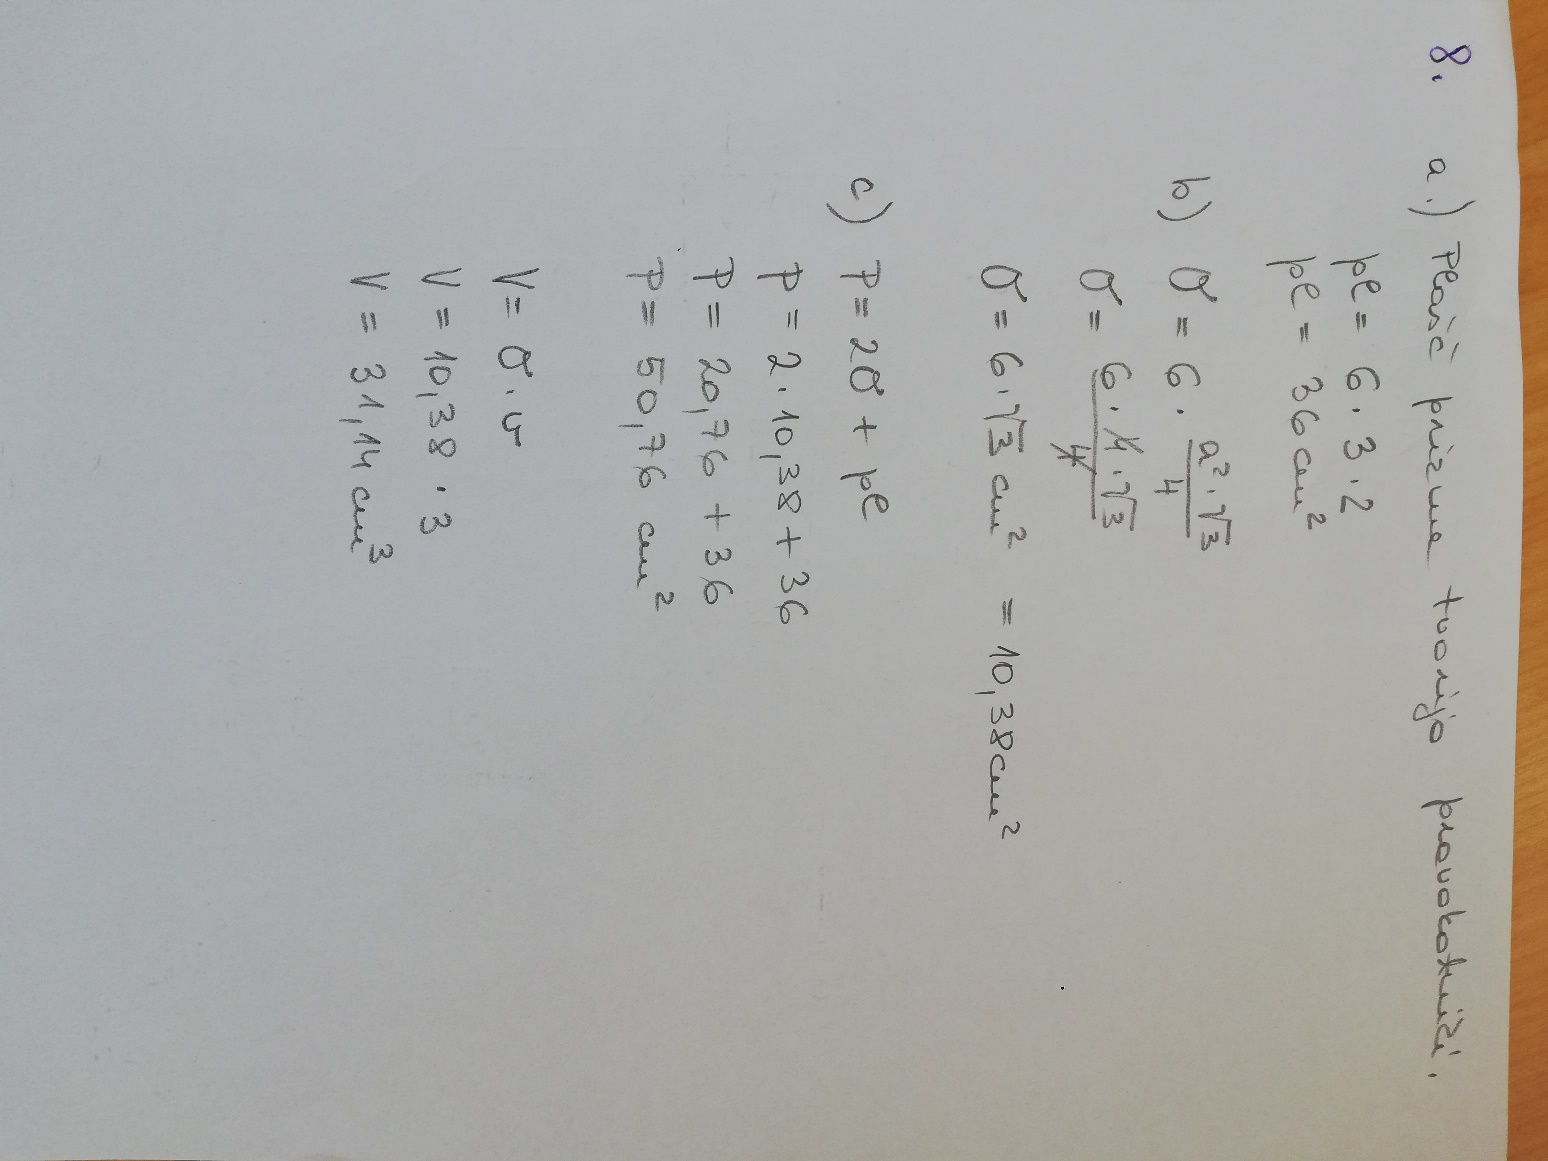 8. a.) Plašč prizme tvorijo pravokotniki.
pl = 6 · 3 · 2
pl = 36 cm²
b) O = 6 · a²·√3/4
O = 6·4·√3/4
O = 6·√3 cm² = 10,38 cm²
c) P = 2O + pl
P = 2 · 10,38 + 36
P = 20,76 + 36
P = 50,76 cm²
V = O · v
V = 10,38 · 3
V = 31,14 cm³